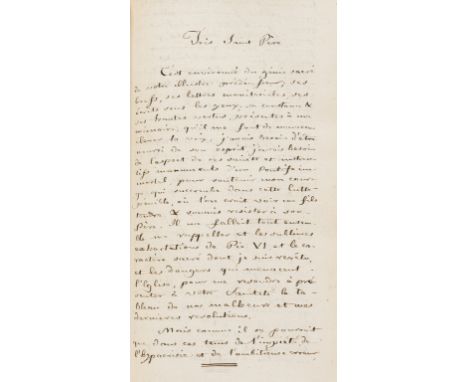 Très Saint Père
C'est environné du génie sacré
de votre illustre prédécesseur, ses
brefs, ses lettres monitoriales, ses
écrits sous les yeux, sa constance &
ses hautes vertus, présentes à ma
mémoire, qu'il me faut de nouveau
élever la voix, j'avais besoin d'être
nourri de son esprit, j'avais besoin
de l'aspect de ces saints et
monuments d'un Pontife im-
mortel, pour soutenir mon coura-
ge, qui succombe dans cette lutte
pénible, où l'on croit voir un fils
tendre & soumis résister à son
Père. Il me fallait tout ensem-
ble me rappeller et les sublimes
exhortations de Pie VI et le ca-
ractère sacré dont je suis revêtu,
et les dangers qui menacent
l'Eglise, pour me resoudre à pré-
senter à votre Sainteté le ta-
bleau de nos malheurs et nos
dernières resolutions.
Mais comme il se pourrait
que dans ces tems de l'impiété, de
l'hypocrisie et de l'ambitieuse